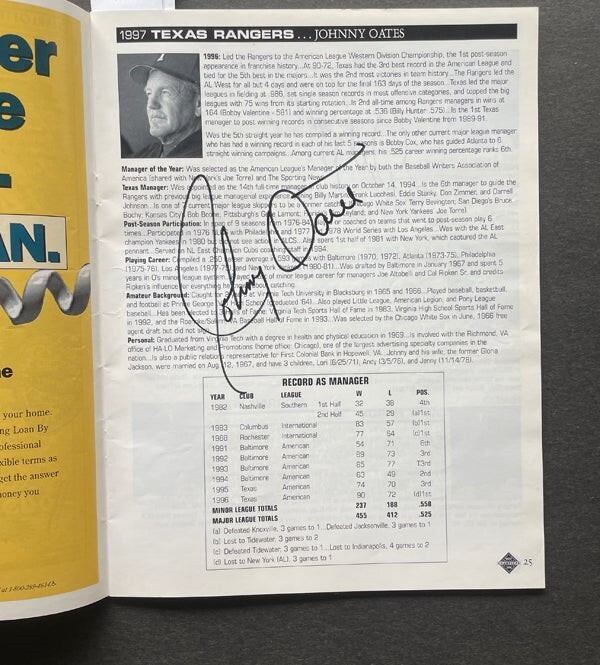 er
e
AN.
ne
your home.
ng Loan By
ofessional
xible terms as
get the answer
noney you
at 1-800-289-4634.
1997 TEXAS RANGERS . . . JOHNNY OATES
1996: Led the Rangers to the American League Western Division Championship, the 1st post-season
appearance in franchise history...At 90-72, Texas had the 3rd best record in the American League and
tied for the 5th best in the majors...It was the 2nd most victories in team history...The Rangers led the
AL West for all but 4 days and were on top for the final 163 days of the season...Texas led the major
leagues in fielding at .986, set single season records in most offensive categories, and topped the big
leagues with 75 wins from its starting rotation...Is 2nd all-time among Rangers managers in wins at
164 (Bobby Valentine - 581) and winning percentage at .536 (Billy Hunter .575)...Is the 1st Texas
manager to post winning records in consecutive seasons since Bobby Valentine from 1989-91.
Was the 5th straight year he has compiled a winning record...The only other current major league manager
who has had a winning record in each of his last 5 seasons is Bobby Cox, who has guided Atlanta to 6
straight winning campaigns...Among current AL managers, his .525 career winning percentage ranks 6th.
Manager of the Year: Was selected as the American League's Manager of the Year by both the Baseball Writers Association of
America (shared with New York's Joe Torre) and The Sporting News.
Texas Manager: Was as the 14th full-time manager in club history on October 14, 1994...Is the 6th manager to guide the
Rangers with previous big league managerial experience, joining Billy Martin, Frank Lucchesi, Eddie Stanky, Don Zimmer, and Darrell
Johnson...Is one of 7 current major league skippers to be a former catcher White Sox' Terry Bevington; San Diego's Bruce
Bochy; Kansas City's Bob Boone; Pittsburgh's Gene Lamont; Leyland; and New York Yankees' Joe Torre).
Post-Season Participation: In of 9 seasons from 1976-84 or coached on teams that went to post-season play 6
times...Participated in 1976 with Philadelphia and 1977 1978 World Series with Los Angeles...Was with the AL East
champion Yankees in 1980 but did not see action spent 1st half of 1981 with New York, which captured the AL
pennant...Served on NL East Champion Cubs coaching staff in
Playing Career: Compiled a .250 career average in 593 games with Baltimore (1970, 1972), Atlanta (1973-75), Philadelphia
(1975-76), Los Angeles (1977-79) and New York (1980-81)...Was drafted by Baltimore in January 1967 and spent 5
years in O's minor league system, of minor league career for managers Joe Altobelli and Cal Ripken Sr. and credits
Ripken's influence
Amateur Background: Caught for at Virginia Tech University in Blacksburg in 1965 and 1966...Played baseball, basketball,
and football at Prince George High School (graduated '64)...Also played Little League, American Legion, and Pony League
baseball...Has been elected to Halls of Fame: Virginia Tech Sports Hall of Fame in 1983, Virginia High School Sports Hall of Fame
in 1992, and the Richmond, VA Baseball Hall of Fame in 1993...Was selected by the Chicago White Sox in June, 1966 free
agent draft but did not sign.
Personal: Graduated from Virginia Tech with a degree in health and physical education in 1969...Is involved with the Richmond, VA
office of HA-LO Marketing and Promotions (home office: Chicago), one of the largest advertising specialty companies in the
nation...Is also a public relations representative for First Colonial Bank in Hopewell, VA...Johnny and his wife, the former Gloria
Jackson, were married on Aug. 12, 1967, and have 3 children, Lori (6/25/71), Andy (3/5/76), and Jenny (11/14/78).
Johnny Oates
RECORD AS MANAGER
YEAR CLUB LEAGUE W L POS.
1982 Nashville Southern 1st Half 32 38 4th
2nd Half 45 29 (a)1st
1983 Columbus International 83 57 (b)1st
1988 Rochester International 77 64 (c)1st
1991 Baltimore American 54 71 6th
1992 Baltimore American 89 73 3rd
1993 Baltimore American 85 77 T3rd
1994 Baltimore American 63 49 2nd
1995 Texas American 74 70 3rd
1996 Texas American 90 72 (d)1st
MINOR LEAGUE TOTALS 237 188 .558
MAJOR LEAGUE TOTALS 455 412 .525
(a) Defeated Knoxville, 3 games to 1...Defeated Jacksonville, 3 games to 1
(b) Lost to Tidewater, 3 games to 2
(c) Defeated Tidewater, 3 games to 1...Lost to Indianapolis, 4 games to 2
(d) Lost to New York (AL), 3 games to 1
25